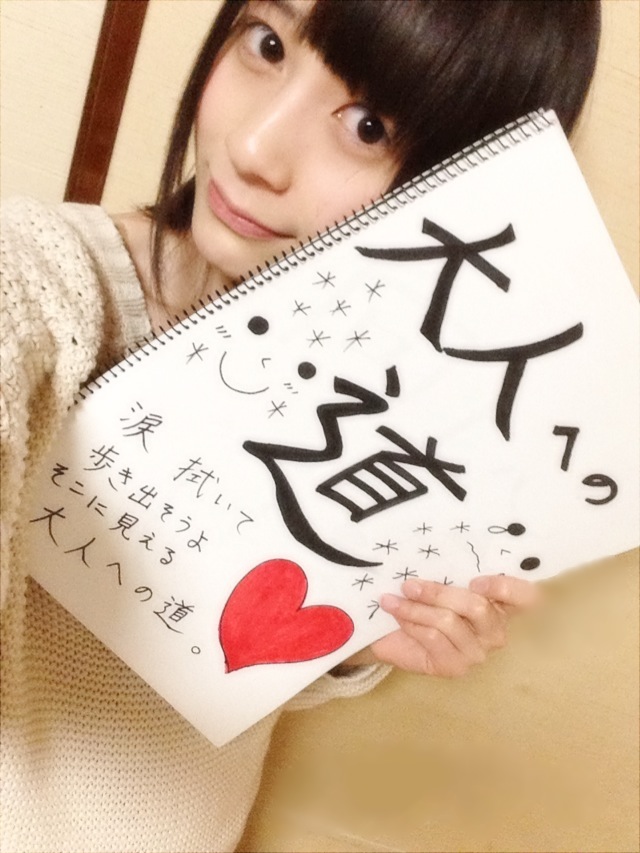 大人への
道
涙 拭いて
歩き出そうよ
そこに見える
大人への道。